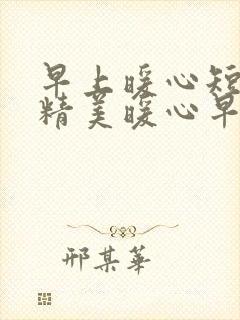 早上暖心短
精美暖心早
邢某華